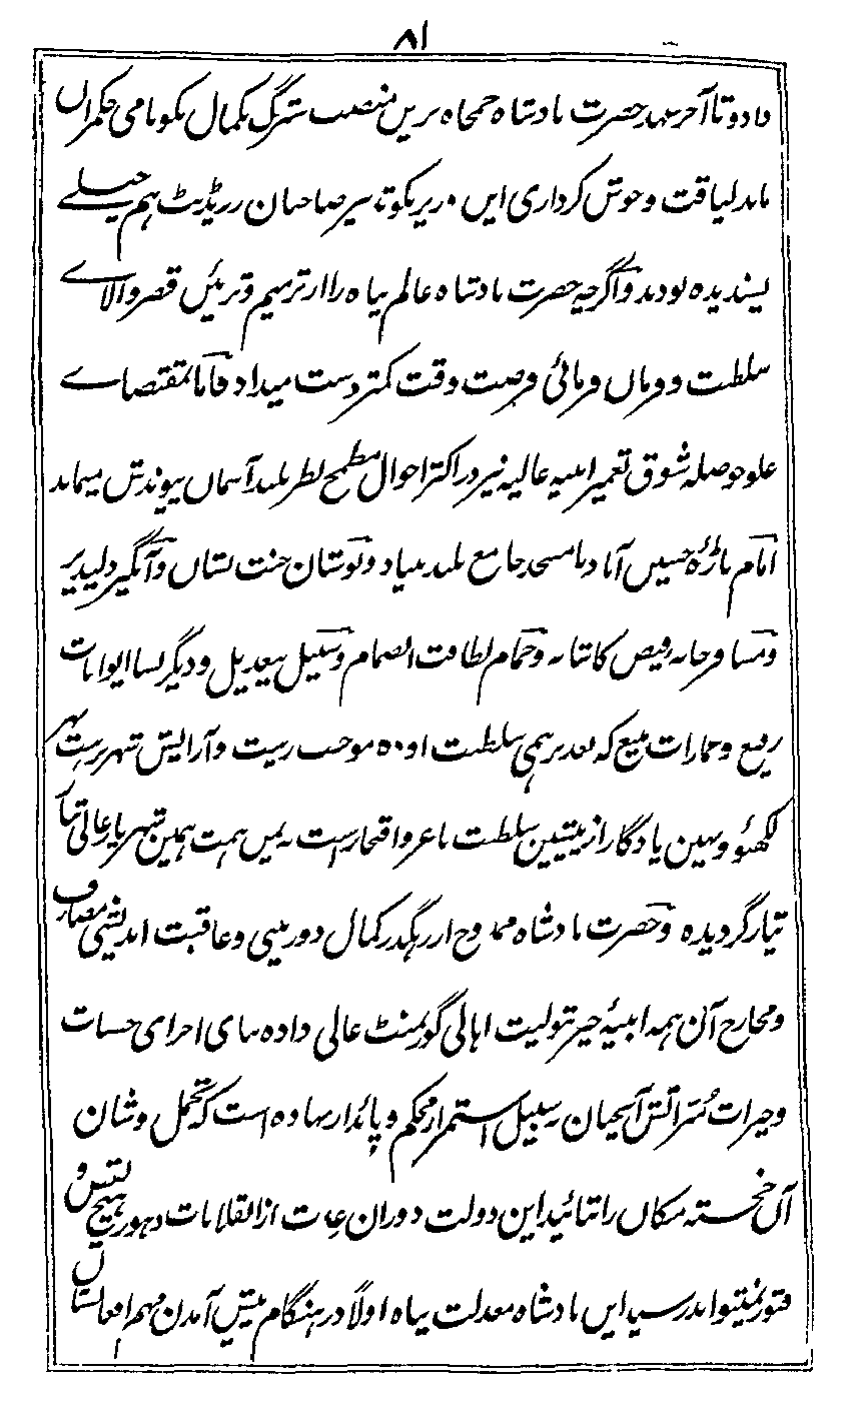 ۸۱
داد و تا آخر عہد حضرت بادشاہ جمجاہ بریں منصب سترگ بکمال نکونامی حکمراں
ماند لیاقت و خوش کرداری ایں وزیر نکو تدبیر صاحبان رزیڈنٹ ہم خیلے
پسندیدہ بودند و اگرچہ حضرت بادشاہ عالم پناہ را از ترمیم و تزئیں قصر والاے
سلطنت و فرماں فرمائی فرصت وقت کمتر دست میداد فاما بمقتضاے
علو حوصلہ شوق تعمیر ابنیہ عالیہ نیز در اکثر احوال مطمح نظر بلند آسماں پیوندش میماند
امام باڑہ حسین آباد با مسجد جامع بلند بنیاد و بوستان جنت نشاں و آبگیر دلپذیر
و مسافر خانہ فیض کاشانہ و حمام لطافت انضمام و سبیل بیعدیل و دیگر بسا ایوانات
رفیع و عمارات منیع کہ بعد برہمی سلطنت اودہ موجب زینت و آرایش شہر
لکھنؤ و بہین یادگار از پیشین سلطنت با عز و افتخار است بیمن ہمت ہمین شہریار عالی تبار
تیار گردیدہ و حضرت بادشاہ ممدوح از رہگذر کمال دوربینی و عاقبت اندیشی مصارف
و مخارج آن ہمہ ابنیۂ خیر بتولیت اہالی گورنمنٹ عالی دادہ بنای اجرای حسنات
و خیرات مبرات آنجہان بسبیل استمرار محکم و پائدار نہادہ است کہ تجمل و شان
آں خجستہ مکاں را بتائید این دولت دوران عدت از انقلابات دہور ہیچ نقص و
فتور نمیتواند رسید ایں بادشاہ معدلت پناہ اولاً در ہنگام پیش آمدن مہم افغانستاں